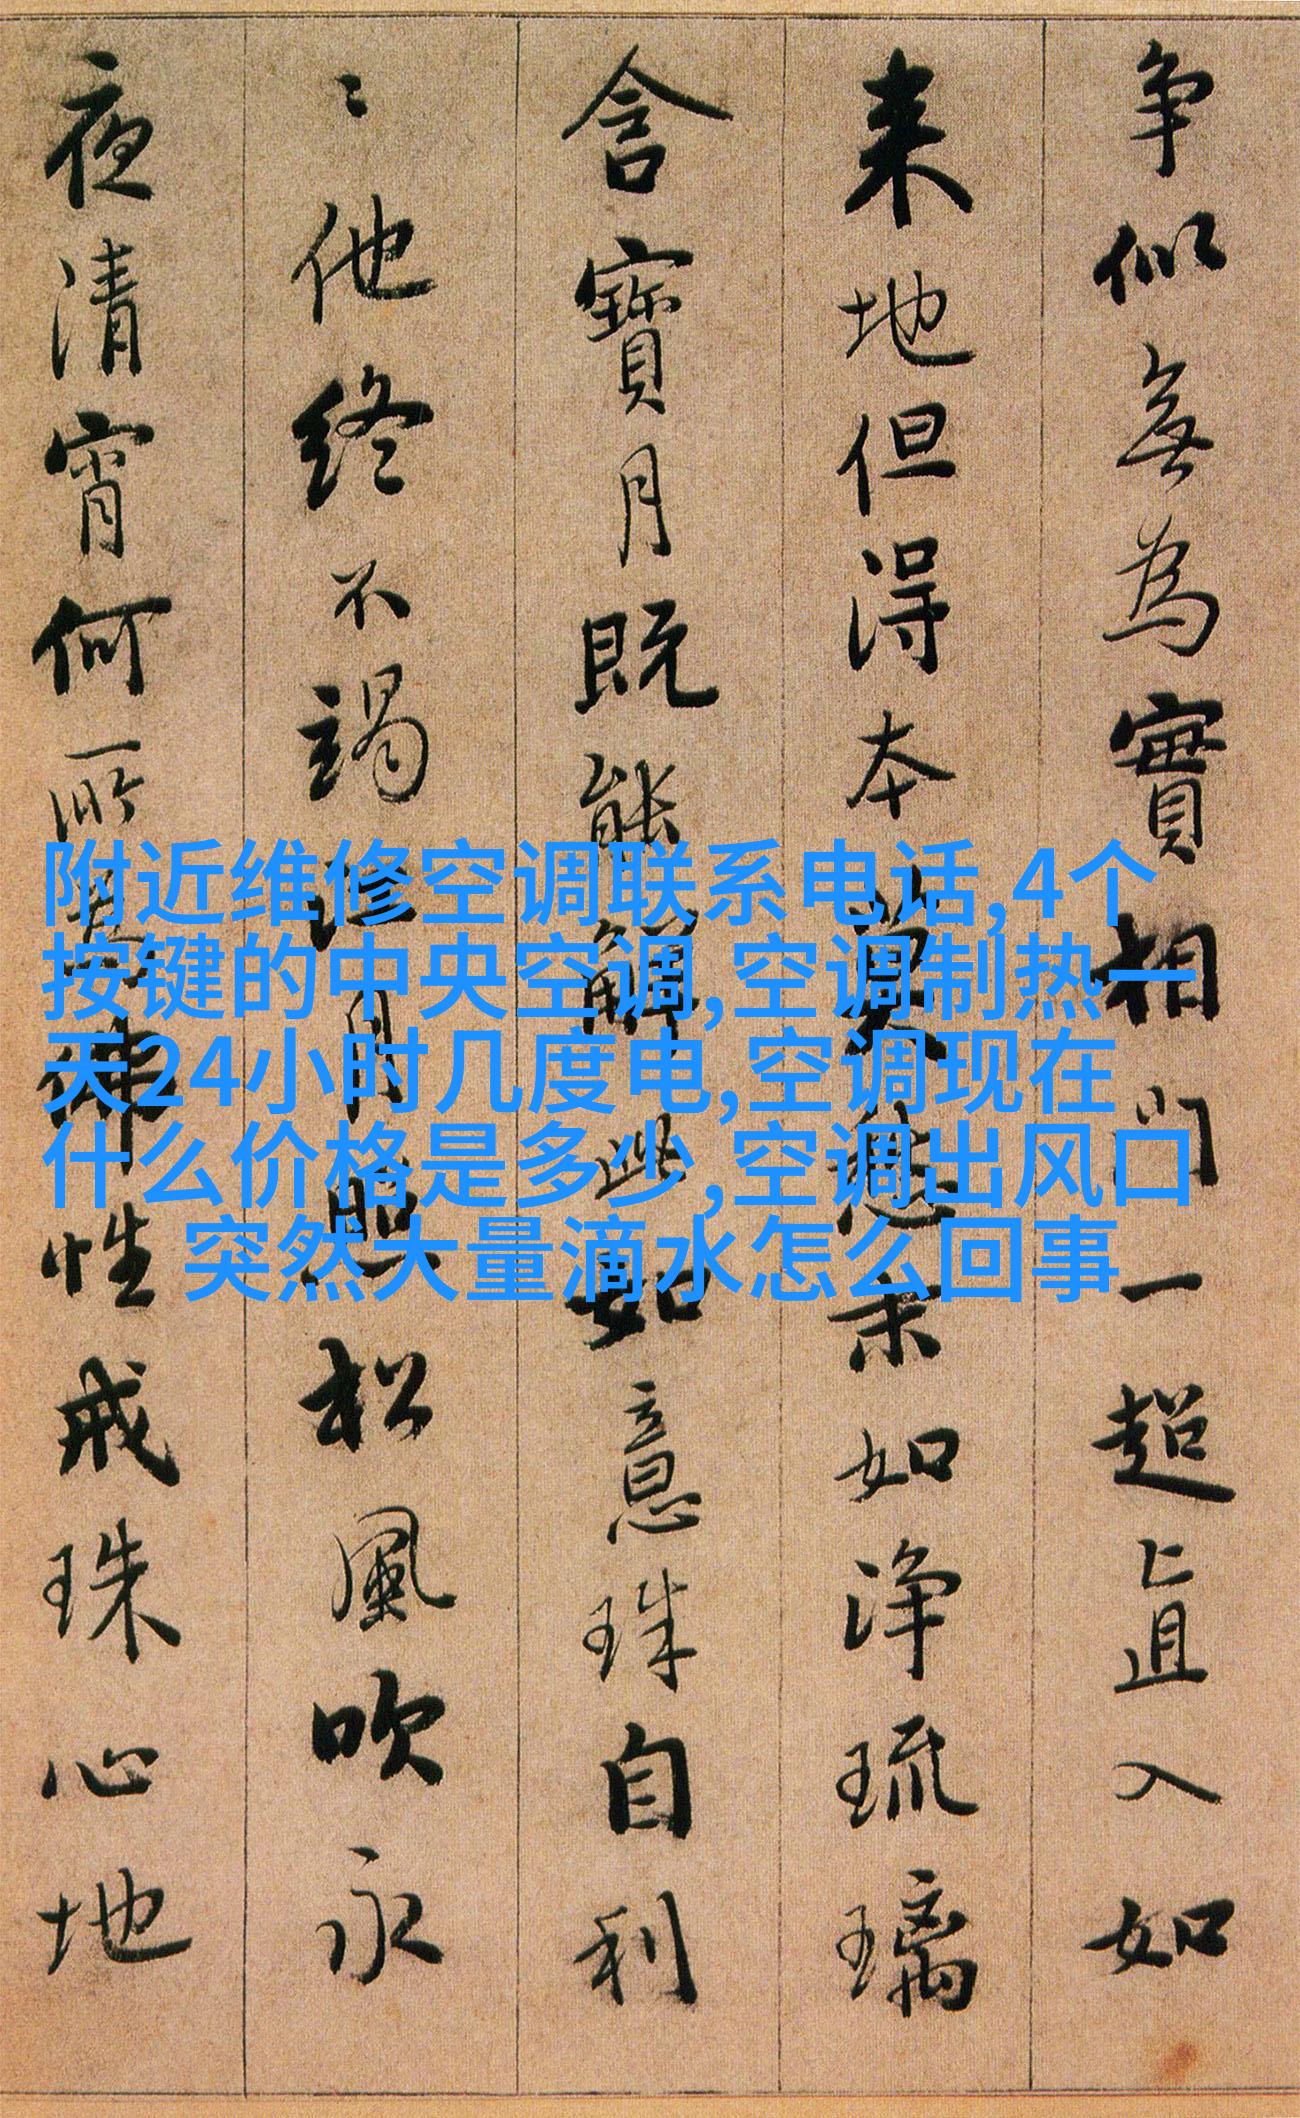 争似無為實相门一超直入如
来地但得本莫愁末如淨琉璃
含寶月既能解此如意珠自利
〻他終不竭江月照松風吹永
夜清宵何所佛性戒珠心地
附近维修空调联系电话,4个
按键的中央空调,空调制热一
天24小时几度电,空调现在
什么价格是多少,空调出风口
突然大量滴水怎么回事